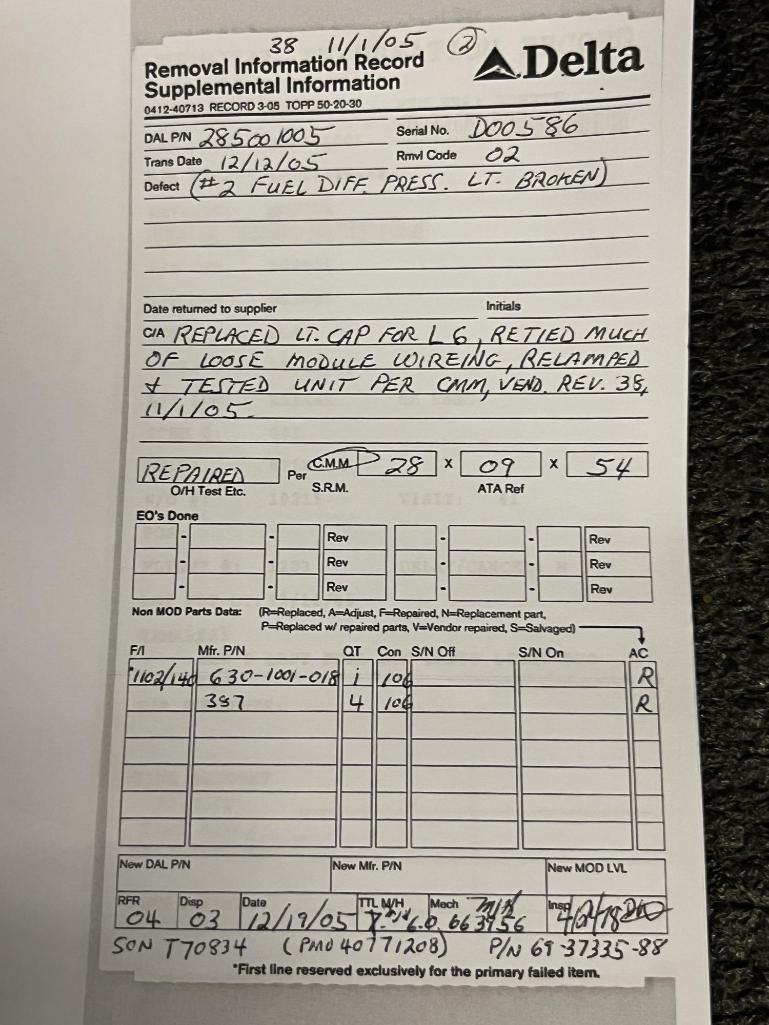 38 11/1/05 2
Removal Information Record
Supplemental Information
Delta
0412-40713 RECORD 3-05 TOPP 50-20-30
DAL P/N 285001005 Serial No. D00586
Trans Date 12/12/05 Rmvl Code 02
Defect (#2 FUEL DIFF. PRESS. LT. BROKEN)
Date returned to supplier Initials
C/A REPLACED LT. CAP FOR L 6, RETIED MUCH
OF LOOSE MODULE WIREING, RELAMPED
& TESTED UNIT PER CMM, VEND. REV. 38,
11/1/05.
REPAIRED Per C.M.M. 28 X 09 X 54
O/H Test Etc. S.R.M. ATA Ref
EO's Done
- - Rev - - Rev
- - Rev - - Rev
- - Rev - - Rev
Non MOD Parts Data: (R=Replaced, A=Adjust, F=Repaired, N=Replacement part,
P=Replaced w/ repaired parts, V=Vendor repaired, S=Salvaged)
F/I Mfr. P/N QT Con S/N Off S/N On AC
1102/140 630-1001-018 1 106 R
387 4 106 R
New DAL P/N New Mfr. P/N New MOD LVL
RFR Disp Date TTL M/H Mech Insp
04 03 12/19/05 6.0 663956
SON T70834 (PMO 40771208) P/N 69-37335-88
*First line reserved exclusively for the primary failed item.